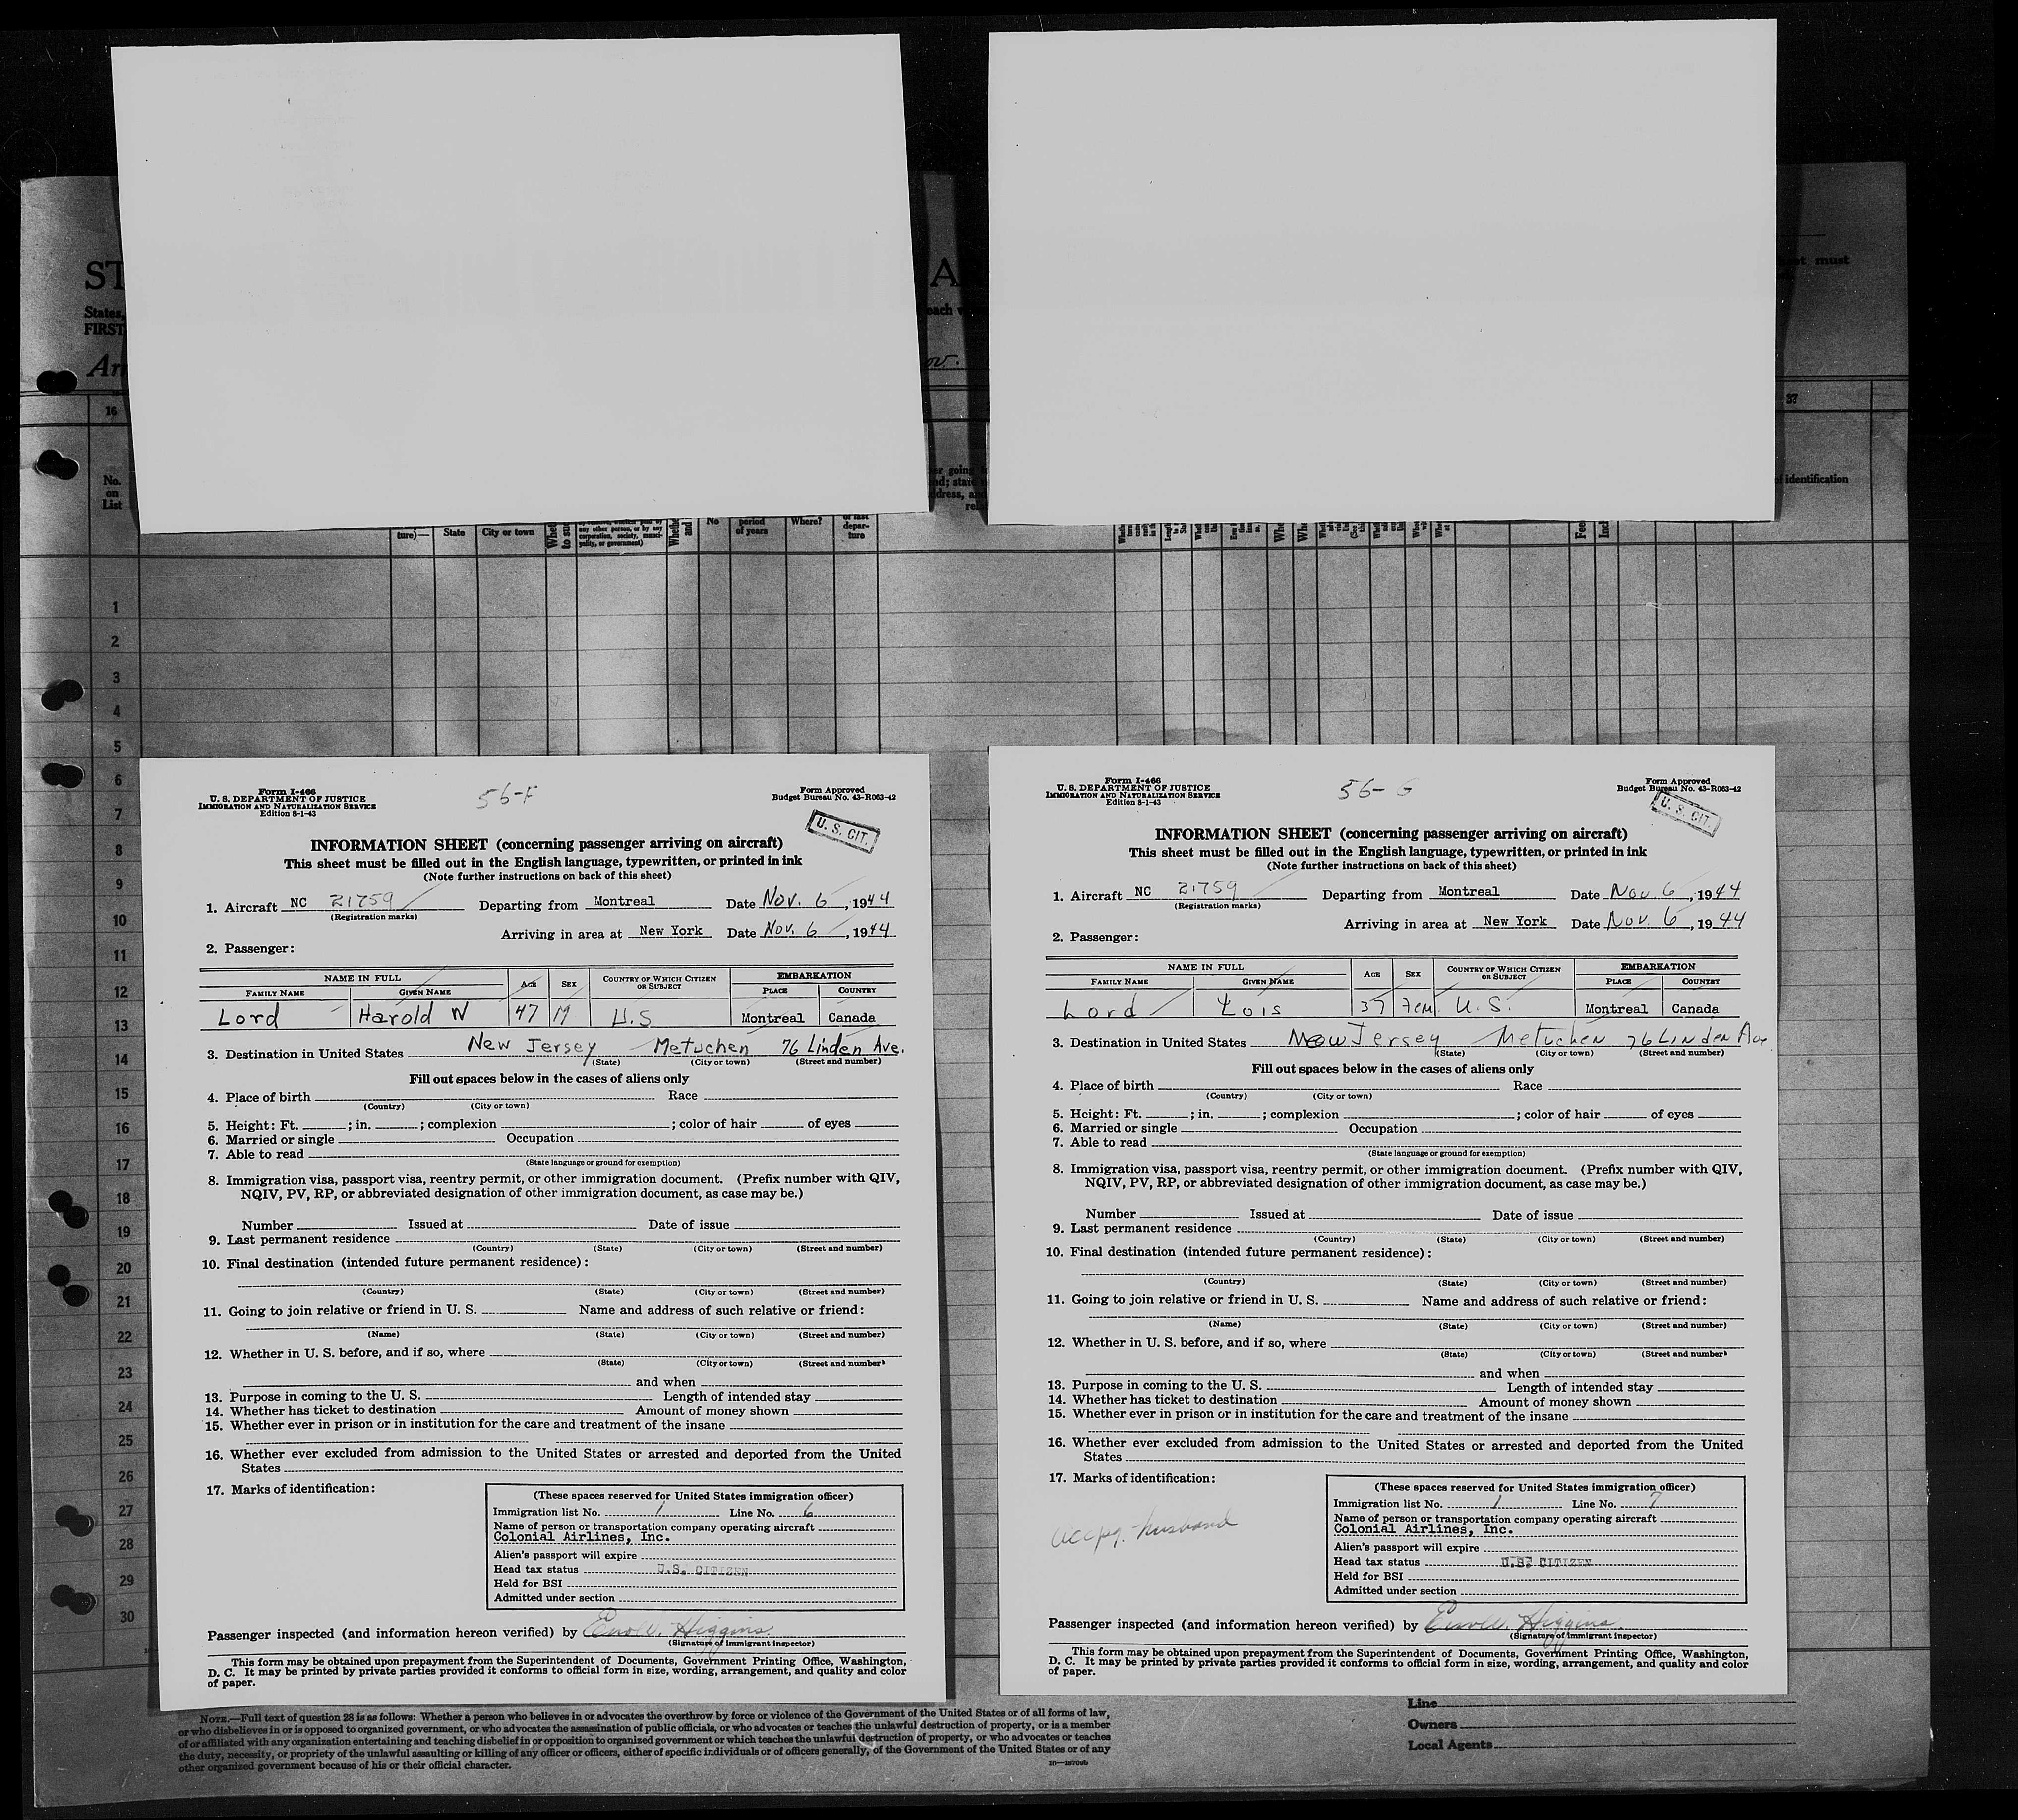 ST
A
States,
FIRST
each
must
Ar
ov.
16
37
No.
on
List
er going
dress,
of identification
ture)—
State
City or town
any other person, or by any
corporation, society, munici-
pality, or government)
No
period
of years
Where?
depar-
ture
1
2
3
4
5
6
7
8
9
10
11
12
13
14
15
16
17
18
19
20
21
22
23
24
25
26
27
28
29
30
Form I-466
U. S. DEPARTMENT OF JUSTICE
IMMIGRATION AND NATURALIZATION SERVICE
Edition 8-1-43
56-F
Form Approved
Budget Bureau No. 43-R063-42
U. S. CIT.
INFORMATION SHEET (concerning passenger arriving on aircraft)
This sheet must be filled out in the English language, typewritten, or printed in ink
(Note further instructions on back of this sheet)
1. Aircraft NC 21759 Departing from Montreal Date Nov. 6, 1944
(Registration marks)
Arriving in area at New York Date Nov. 6, 1944
2. Passenger:
NAME IN FULL AGE SEX COUNTRY OF WHICH CITIZEN OR SUBJECT EMBARKATION
FAMILY NAME GIVEN NAME PLACE COUNTRY
Lord Harold W 47 M U.S Montreal Canada
3. Destination in United States New Jersey Metuchen 76 Linden Ave.
(State) (City or town) (Street and number)
Fill out spaces below in the cases of aliens only
4. Place of birth Race
(Country) (City or town)
5. Height: Ft. ; in. ; complexion ; color of hair of eyes
6. Married or single Occupation
7. Able to read
(State language or ground for exemption)
8. Immigration visa, passport visa, reentry permit, or other immigration document. (Prefix number with QIV,
NQIV, PV, RP, or abbreviated designation of other immigration document, as case may be.)
Number Issued at Date of issue
9. Last permanent residence
(Country) (State) (City or town) (Street and number)
10. Final destination (intended future permanent residence):
(Country) (State) (City or town) (Street and number)
11. Going to join relative or friend in U. S. Name and address of such relative or friend:
(Name) (State) (City or town) (Street and number)
12. Whether in U. S. before, and if so, where
(State) (City or town) (Street and number)
and when
13. Purpose in coming to the U. S. Length of intended stay
14. Whether has ticket to destination Amount of money shown
15. Whether ever in prison or in institution for the care and treatment of the insane
16. Whether ever excluded from admission to the United States or arrested and deported from the United
States
17. Marks of identification:
(These spaces reserved for United States immigration officer)
Immigration list No. 1 Line No. 6
Name of person or transportation company operating aircraft
Colonial Airlines, Inc.
Alien's passport will expire
Head tax status U.S. CITIZEN
Held for BSI
Admitted under section
Passenger inspected (and information hereon verified) by Higgins
(Signature of immigrant inspector)
This form may be obtained upon prepayment from the Superintendent of Documents, Government Printing Office, Washington,
D. C. It may be printed by private parties provided it conforms to official form in size, wording, arrangement, and quality and color
of paper.
Form I-466
U. S. DEPARTMENT OF JUSTICE
IMMIGRATION AND NATURALIZATION SERVICE
Edition 8-1-43
56-G
Form Approved
Budget Bureau No. 43-R063-42
U. S. CIT.
INFORMATION SHEET (concerning passenger arriving on aircraft)
This sheet must be filled out in the English language, typewritten, or printed in ink
(Note further instructions on back of this sheet)
1. Aircraft NC 21759 Departing from Montreal Date Nov. 6, 1944
(Registration marks)
Arriving in area at New York Date Nov. 6, 1944
2. Passenger:
NAME IN FULL AGE SEX COUNTRY OF WHICH CITIZEN OR SUBJECT EMBARKATION
FAMILY NAME GIVEN NAME PLACE COUNTRY
Lord Lois 37 Fem. U.S. Montreal Canada
3. Destination in United States New Jersey Metuchen 76 Linden Ave
(State) (City or town) (Street and number)
Fill out spaces below in the cases of aliens only
4. Place of birth Race
(Country) (City or town)
5. Height: Ft. ; in. ; complexion ; color of hair of eyes
6. Married or single Occupation
7. Able to read
(State language or ground for exemption)
8. Immigration visa, passport visa, reentry permit, or other immigration document. (Prefix number with QIV,
NQIV, PV, RP, or abbreviated designation of other immigration document, as case may be.)
Number Issued at Date of issue
9. Last permanent residence
(Country) (State) (City or town) (Street and number)
10. Final destination (intended future permanent residence):
(Country) (State) (City or town) (Street and number)
11. Going to join relative or friend in U. S. Name and address of such relative or friend:
(Name) (State) (City or town) (Street and number)
12. Whether in U. S. before, and if so, where
(State) (City or town) (Street and number)
and when
13. Purpose in coming to the U. S. Length of intended stay
14. Whether has ticket to destination Amount of money shown
15. Whether ever in prison or in institution for the care and treatment of the insane
16. Whether ever excluded from admission to the United States or arrested and deported from the United
States
17. Marks of identification:
accpg. husband
(These spaces reserved for United States immigration officer)
Immigration list No. 1 Line No. 7
Name of person or transportation company operating aircraft
Colonial Airlines, Inc.
Alien's passport will expire
Head tax status U.S. CITIZEN
Held for BSI
Admitted under section
Passenger inspected (and information hereon verified) by Higgins
(Signature of immigrant inspector)
This form may be obtained upon prepayment from the Superintendent of Documents, Government Printing Office, Washington,
D. C. It may be printed by private parties provided it conforms to official form in size, wording, arrangement, and quality and color
of paper.
NOTE.—Full text of question 28 is as follows: Whether a person who believes in or advocates the overthrow by force or violence of the Government of the United States or of all forms of law,
or who disbelieves in or is opposed to organized government, or who advocates the assassination of public officials, or who advocates or teaches the unlawful destruction of property, or is a member
of or affiliated with any organization entertaining and teaching disbelief in or opposition to organized government or which teaches the unlawful destruction of property, or who advocates or teaches
the duty, necessity, or propriety of the unlawful assaulting or killing of any officer or officers, either of specific individuals or of officers generally, of the Government of the United States or of any
other organized government because of his or their official character.
Line
Owners
Local Agents